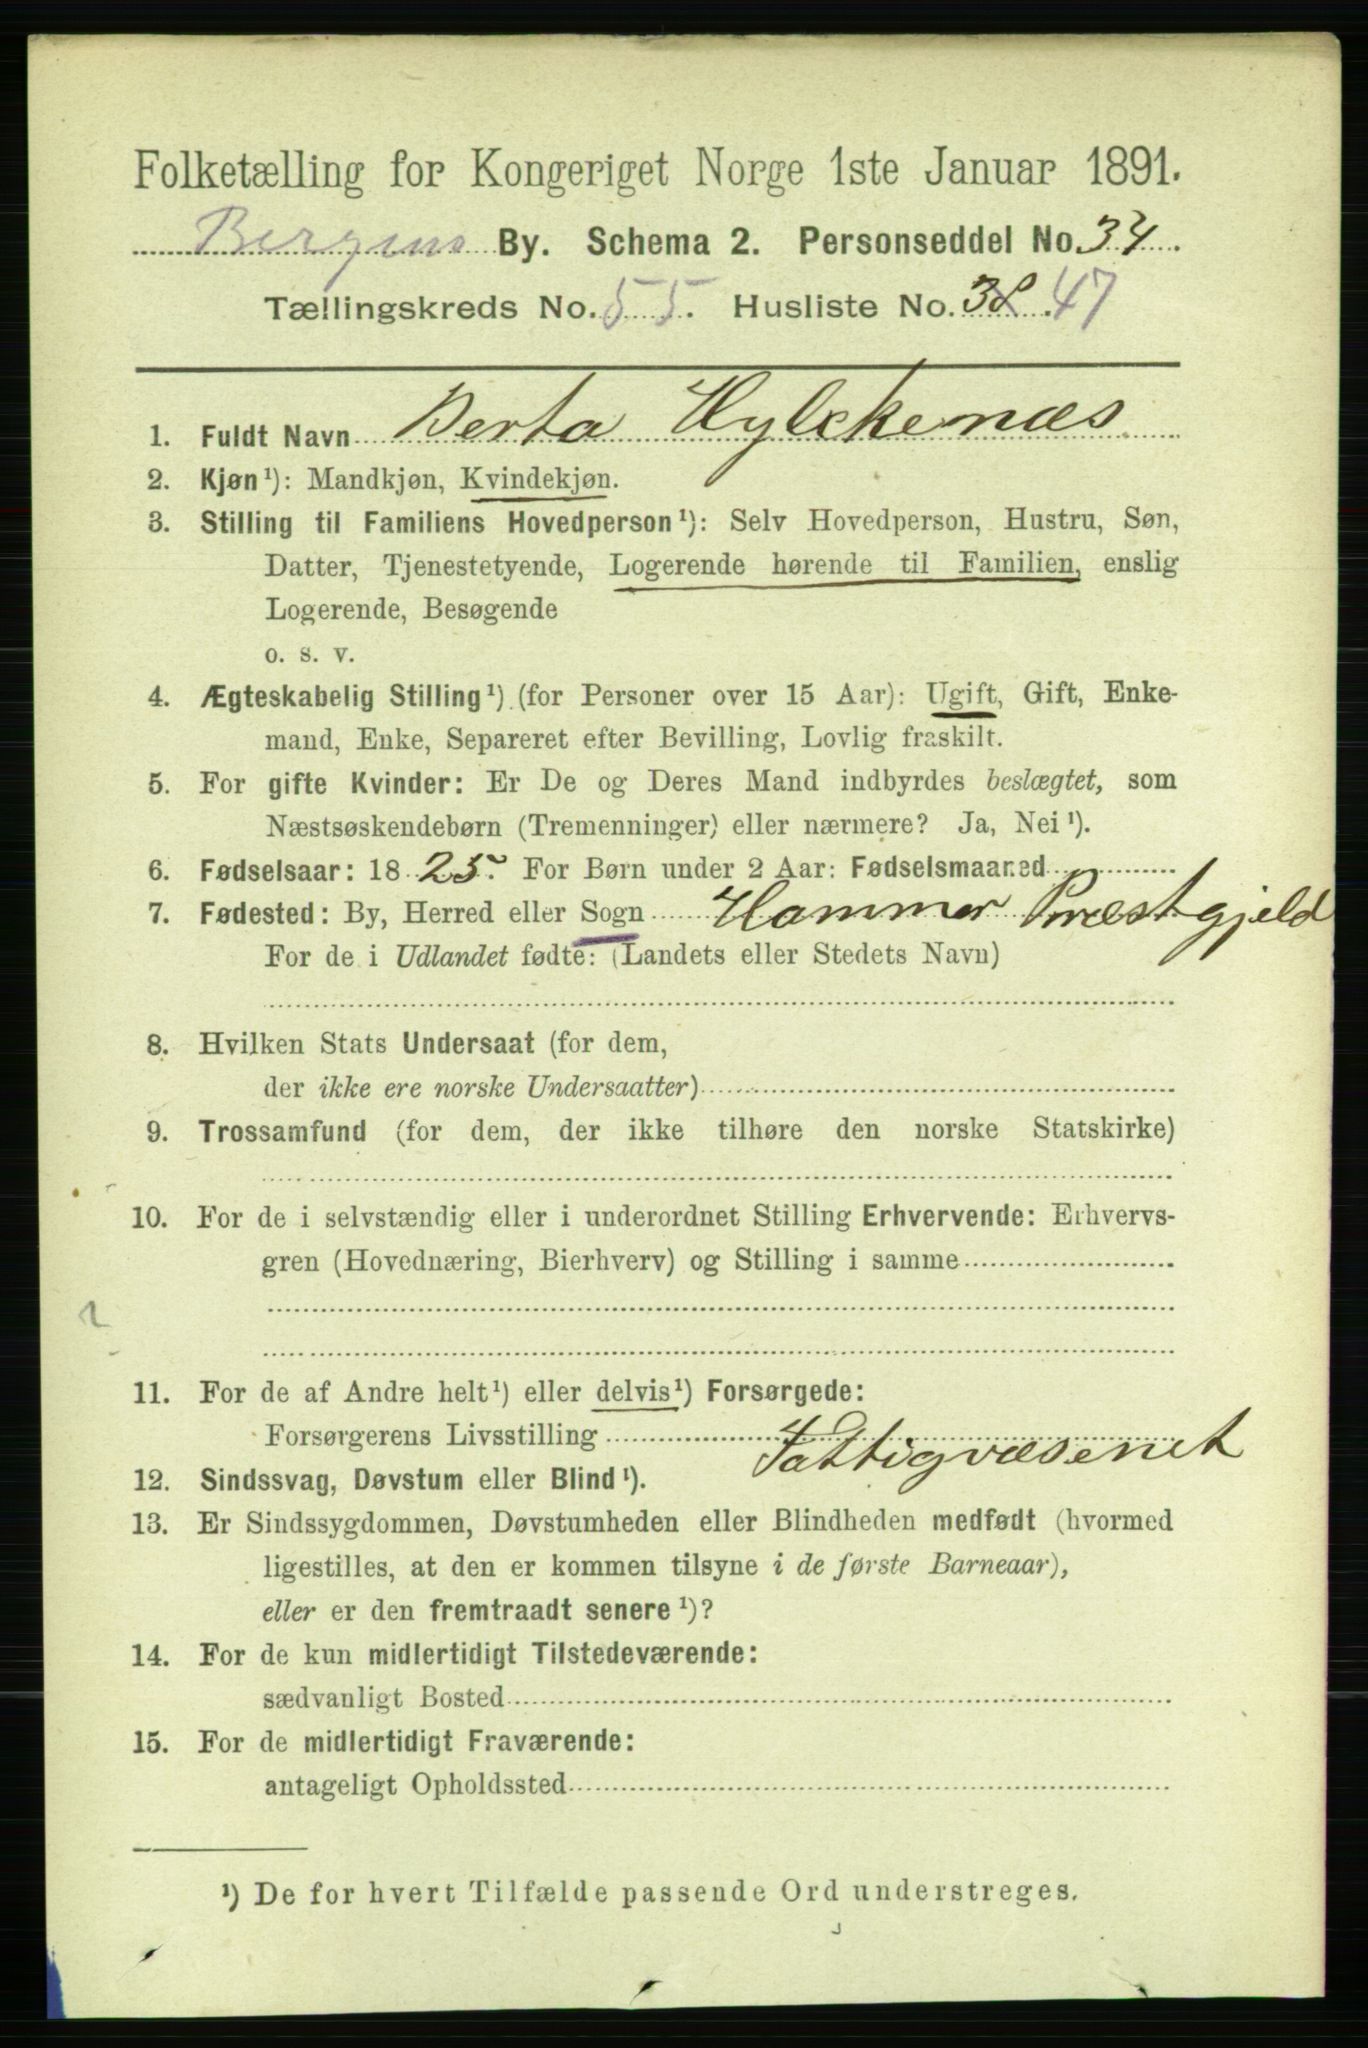 Folketælling for Kongeriget Norge 1ste Januar 1891.
Bergens By. Schema 2. Personseddel No. 34.
Tællingskreds No. 55. Husliste No. 38. 47
1. Fuldt Navn Berta Hylckenæs
2. Kjøn¹): Mandkjøn, Kvindekjøn.
3. Stilling til Familiens Hovedperson¹): Selv Hovedperson, Hustru, Søn,
Datter, Tjenestetyende, Logerende hørende til Familien, enslig
Logerende, Besøgende
o. s. v.
4. Ægteskabelig Stilling¹) (for Personer over 15 Aar): Ugift, Gift, Enke-
mand, Enke, Separeret efter Bevilling, Lovlig fraskilt.
5. For gifte Kvinder: Er De og Deres Mand indbyrdes beslægtet, som
Næstsøskendebørn (Tremenninger) eller nærmere? Ja, Nei¹).
6. Fødselsaar: 1825. For Børn under 2 Aar: Fødselsmaaned
7. Fødested: By, Herred eller Sogn Hammer Præstgjeld
For de i Udlandet fødte: (Landets eller Stedets Navn)
8. Hvilken Stats Undersaat (for dem,
der ikke ere norske Undersaatter)
9. Trossamfund (for dem, der ikke tilhøre den norske Statskirke)
10. For de i selvstændig eller i underordnet Stilling Erhvervende: Erhvervs-
gren (Hovednæring, Bierhverv) og Stilling i samme
11. For de af Andre helt¹) eller delvis¹) Forsørgede:
Forsørgerens Livsstilling Fattigvæsenet
12. Sindssvag, Døvstum eller Blind¹).
13. Er Sindssygdommen, Døvstumheden eller Blindheden medfødt (hvormed
ligestilles, at den er kommen tilsyne i de første Barneaar),
eller er den fremtraadt senere¹)?
14. For de kun midlertidigt Tilstedeværende:
sædvanligt Bosted
15. For de midlertidigt Fraværende:
antageligt Opholdssted
¹) De for hvert Tilfælde passende Ord understreges.